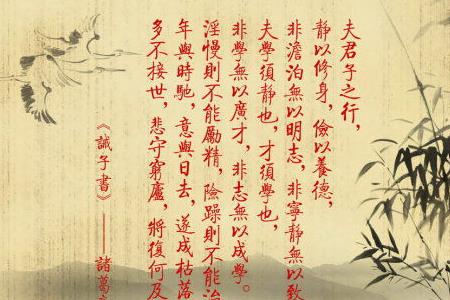 夫君子之行，
靜以修身，儉以養德，
非澹泊無以明志，非寧靜無以致
夫學須靜也，才須學也，
非學無以廣才，非志無以成學。
淫慢則不能勵精，險躁則不能治
年與時馳，意與日去，遂成枯落
多不接世，悲守窮廬，將復何及
《誡子書》——諸葛